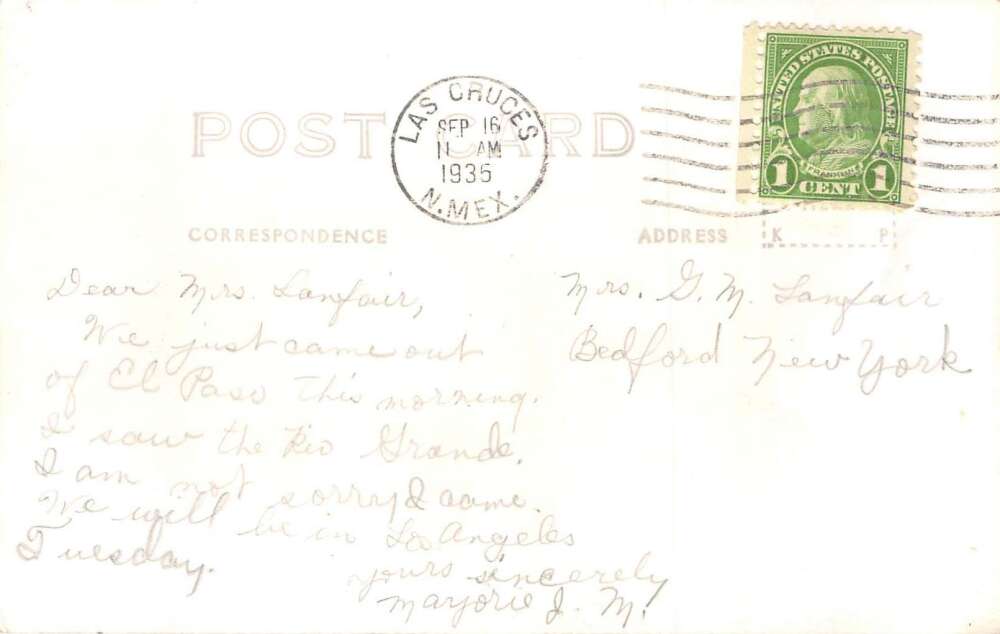 POST CARD
LAS CRUCES
SEP 16
11 AM
1935
N. MEX.
UNITED STATES POSTAGE
FRANKLIN
1 CENT 1
CORRESPONDENCE
ADDRESS
K P
Dear Mrs. Lanfair,
We just came out
of El Paso this morning.
I saw the Rio Grande.
I am not sorry I came.
We will be in Los Angeles
Tuesday.
yours sincerely
Marjorie J. M.
Mrs. G. M. Lanfair
Bedford New York